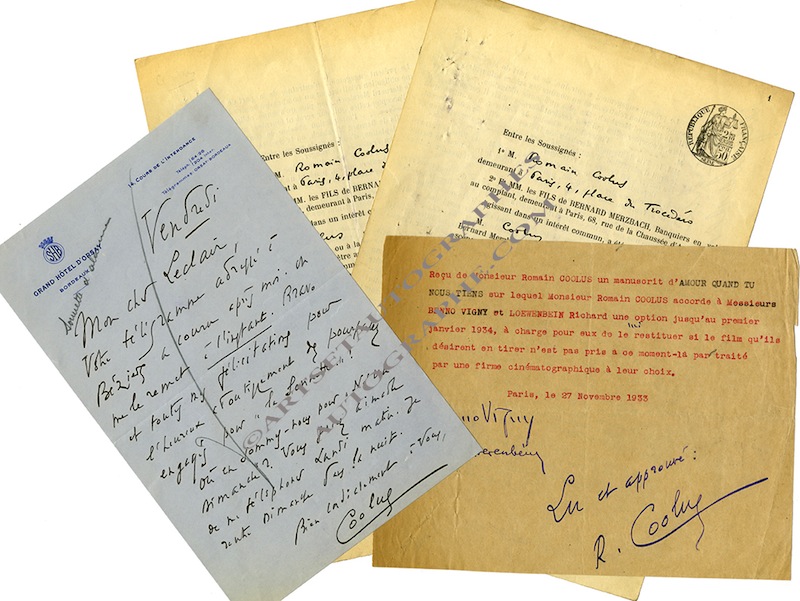 1
RÉPUBLIQUE FRANÇAISE
Entre les Soussignés :
1° M. Romain Coolus
demeurant à Paris, 4, place du Trocadéro
2° Et MM. LES FILS DE BERNARD MERZBACH, Banquiers en
au comptant, demeurant à Paris, 68, rue de la Chaussée d'A
agissant dans un intérêt commun,
M. Coolus
Bernard Merzba
Entre les Soussignés :
1° M. Romain Coolus
demeurant à Paris, 4, place du
2° Et MM. LES FILS DE BERNA
demeurant à Paris,
dans un intérêt
ou à la
14 COURS DE L'INTENDANCE
GRAND HÔTEL D'ORSAY
BORDEAUX
Vendredi
Mon cher Leclair,
Votre télégramme adressé à
Béziers a couru après moi. On
me le remet à l'instant. Bravo
et toutes mes félicitations pour
l'heureux aboutissement des pourparlers
engagés pour
Où en sommes-nous pour
dimanche? Vous aimable
de me téléphoner Lundi matin. Je
rentre Dimanche dans la nuit.
Bien cordialement à vous,
Coolus
Reçu de Monsieur Romain COOLUS un manuscrit d'AMOUR QUAND TU
NOUS TIENS sur lequel Monsieur Romain COOLUS accorde à Messieurs
BENNO VIGNY et LOEWENBEIN Richard une option jusqu'au premier
janvier 1934, à charge pour eux de le restituer si le film qu'ils
désirent en tirer n'est pas pris à ce moment-là par traité
par une firme cinématographique à leur choix.
Paris, le 27 Novembre 1933
no Vigny
Lu et approuvé :
R. Coolus
©ARTSETAUTOGRAPHES
AUTOGRAPHE.COM